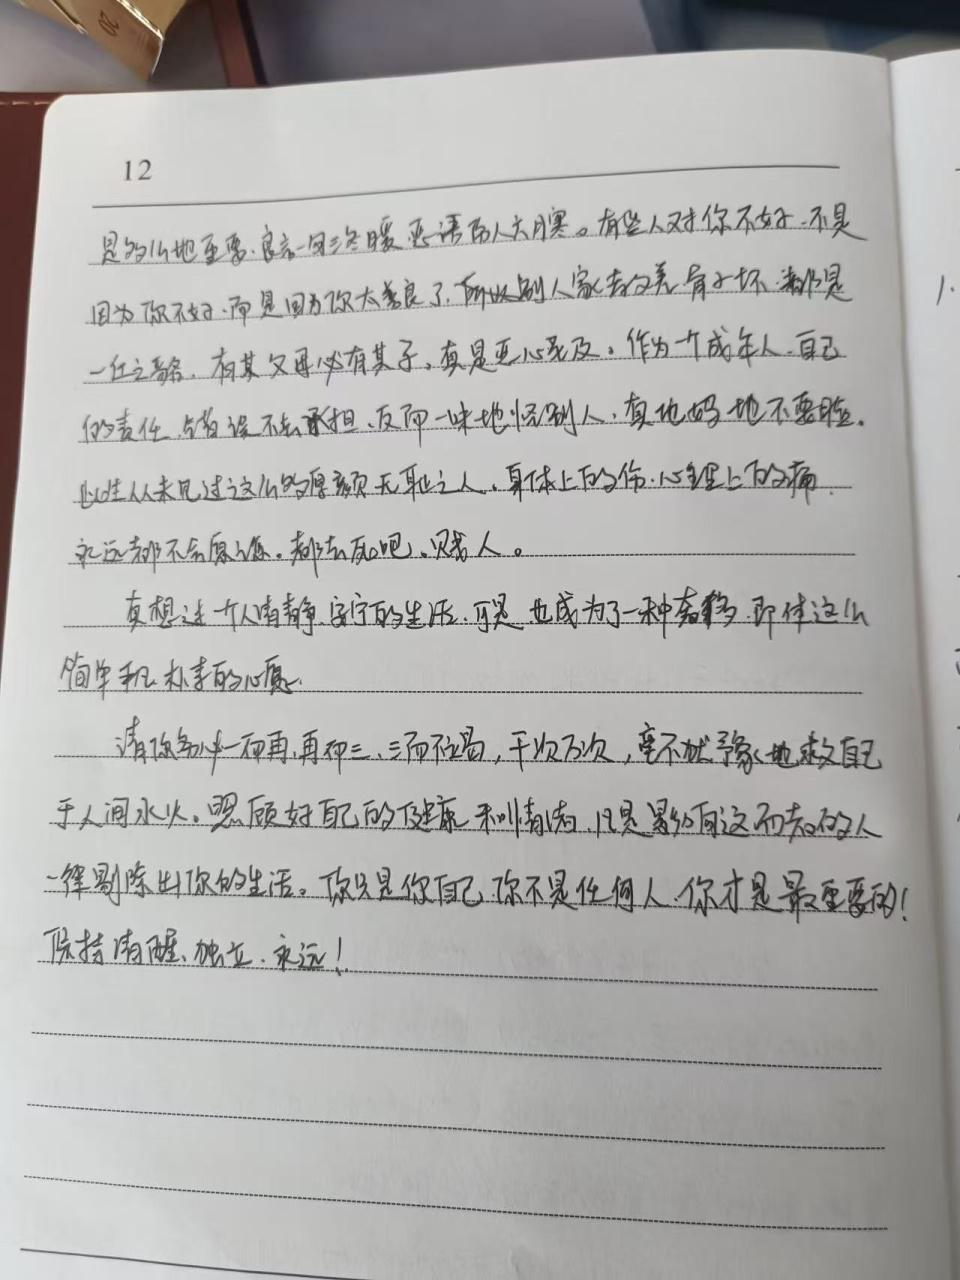 12
是多么地重要。良言一句三冬暖,恶语伤人六月寒。有些人对你不好,不是
因为你不好,而是因为你太善良了,所以别人家教的差、骨子坏,都是
一丘之貉。有其父母必有其子,真是恶心至及。作为一个成年人,自己
的责任、错误不去承担,反而一味地怪别人,真他妈地不要脸。
此生从未见过这么的厚颜无耻之人,身体上的伤,心理上的痛,
永远都不会原谅。都去死吧,贱人。
真想过一个人清静、安宁的生活,可是也成为了一种奢移,即使这么
简单和朴素的心愿。
请你务必一而再,再而三,三而不竭,千次万次,毫不犹豫地救自己
于人间水火。照顾好自己的健康和情绪,凡是影响这两者的人
一律剔除出你的生活。你只是你自己,你不是任何人,你才是最重要的!
保持清醒、独立,永远!
1.